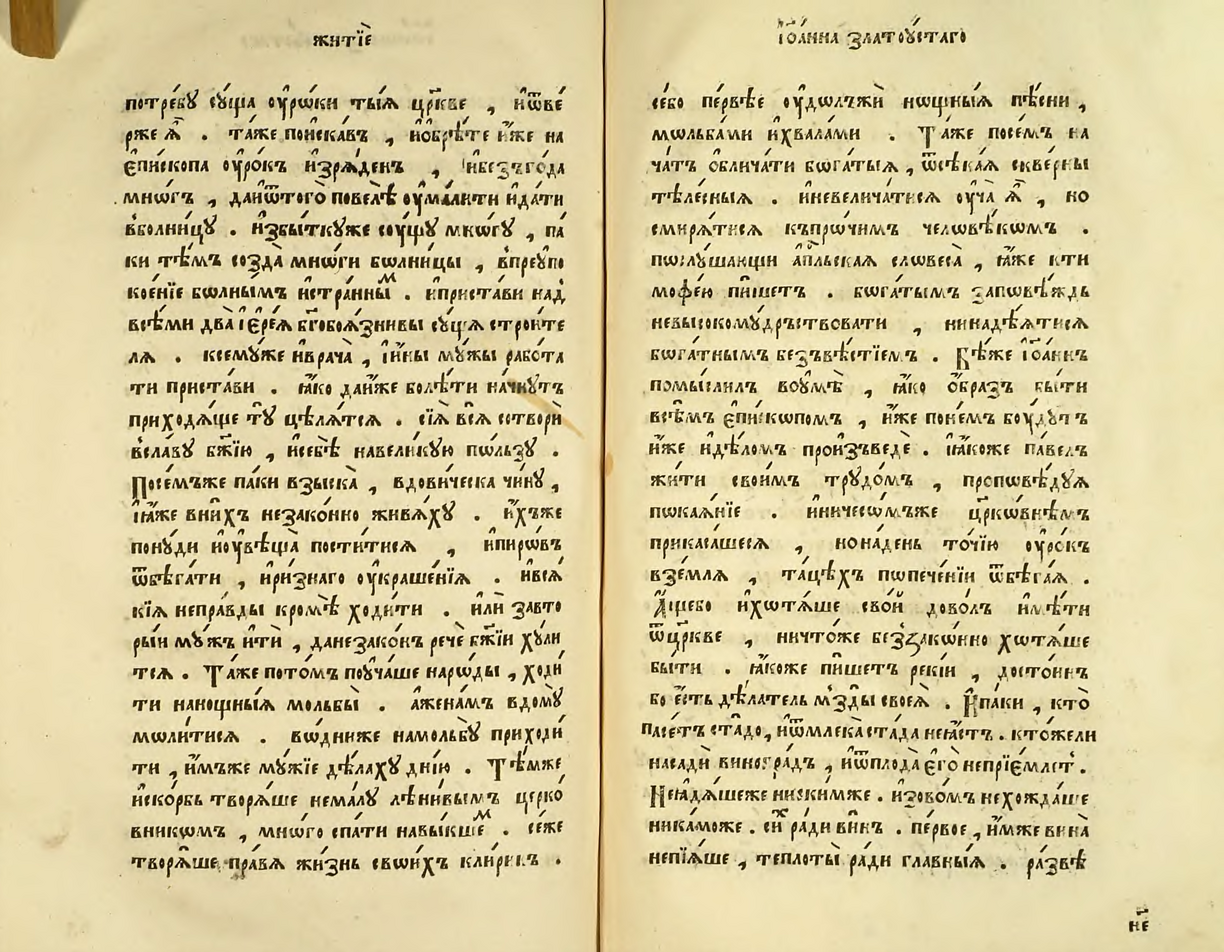 житїѐ
потре́бꙋ сꙋ́ща ᲂу҆рѡ́ки тыѧ̀ цр҃кве , и҆ѿве́
рже ѧ҆̀ . та́же поиска́въ , и҆ѡбрѣ́те и҆́же на
є҆пи́скопа ᲂу҆ро́къ и҆зрѧ́денъ , и҆безъго́да
мно́гъ , даѿтого̀ повелѣ̀ ᲂу҆мали́ти и҆да́ти
вболни́цꙋ . и҆збы́ткꙋже сꙋ́щꙋ мно́гꙋ , па́
ки тѣ́мъ созда̀ мнѡ́ги бѡлни́цы , впреупо
кое́нїе бѡлны́мъ и҆стра́нны́м . и҆приста́ви над̾
всѣ́ми два̀ і҆ере́ѧ бг҃обоѧ́зни́вы сꙋ́щѧ строи́те
лѧ . ксемꙋ́же и҆врача̀ , и҆и҆́ны мꙋ́жы рабо́та
ти приста́ви . ꙗ҆́ко даи҆́же болѣ́ти начнꙋ́тъ
приходѧ́ще тꙋ̀ цѣлѧ́тсѧ . сїѧ̀ всѧ̀ сотворѝ
всла́вꙋ бж҃їю , и҆себѣ̀ навели́кꙋю по́льзꙋ .
Посе́мъже па́ки взыска̀ , вдови́ческа чи́нꙋ ,
ꙗ҆́же вни́хъ незако́нно живѧ́хꙋ . и҆́хъже
понꙋ́ди и҆ᲂу҆вѣща̀ пости́тисѧ , и҆пирѡ́въ
ѿбѣга́ти , и҆ри́знаго ᲂу҆краше́нїѧ . и҆всѧ́
кїѧ непра́вды кромѣ̀ ходи́ти . и҆лѝ завто
ры́и мꙋ́жъ и҆тѝ , данезако́нъ речѐ бж҃їи хꙋ́ли
тсѧ . Та́же пото́мъ поꙋча́ше наро́ды , ходи́
ти нано́щныѧ мольбы̀ . а҆жена́мъ вдомꙋ̀
мѡли́тисѧ . вѡдни́же намольбꙋ̀ приходи́
ти , и҆́мъже мꙋ́жїе дѣ́лахꙋ дню́ю . Тѣ́мже
и҆ско́рбь творѧ́ше нема́лꙋ лѣни́вымъ церко́
вникѡмъ , мнѡ́го спа́ти навы́кшем . се́же
творѧ́ше пра́вѧ жи́знь свѡи́хъ кли́рикъ .
і҆ѡа́нна златоꙋ́стагѡ
се́бо пе́рвѣе ᲂу҆дѡлъжѝ нощны́ѧ пѣ́сни ,
мѡльба́ми и҆хвала́ми . Та́же посе́мъ на
ча́тъ ѡ҆блича́ти бѡга́тыѧ , ѿсѣка́ѧ скве́рны
тѣле́сныѧ . и҆невелича́тисѧ ᲂу҆ча̀ ѧ҆̀ , но
смирѧ́тисѧ къпрѡ́чимъ человѣ́кѡмъ .
пѡслꙋ́шающїи а҆пⷭ҇льскаѧ словеса̀ , ꙗ҆́же кти
мофе́ю пи́шетъ . бѡга́тымъ за́повѣждь
невысокомꙋ́дръствовати , нинадѣ́ѧтисѧ
бѡга́тнымъ безъвѣ́стїемъ . Бѣ́же і҆ѡа́ннъ
помы́слилъ воꙋмѣ̀ , ꙗ҆́ко ѡ҆́бразъ бы́ти
всѣ́мъ є҆пи́скѡпом , и҆́же поне́мъ бꙋ́дꙋтъ
и҆́же и҆дѣ́ломъ произъведѐ . ꙗ҆́коже па́велъ
жи́ти свои́мъ трꙋдо́мъ , проповѣ́дꙋѧ
пѡкаѧ́нїе . и҆ниче́сѡмъже цр҃кѡ́внѣмъ
прикаса́шесѧ , нонаде́нь то́чїю ᲂу҆ро́къ
взе́млѧ , та́цѣхъ попече́нїи ѿбѣга́ѧ .
А҆́щебо и҆хотѧ́ше сво́й дово́лъ и҆мѣ́ти
ѿцр҃кве , ничто́же беззако́нно хотѧ́ше
бы́ти . ꙗ҆́коже пи́шетъ реки́и , досто́инъ
бо є҆́сть дѣ́латель мзды̀ своеѧ̀ . И҆па́ки , кто̀
пасе́тъ ста́до , и҆ѿмлека̀ ста́да неꙗ҆́стъ . кто́жели
насадѝ виногра́дъ , и҆ѿплода̀ є҆го̀ непрїе́млет .
Неꙗ҆дѧ́шеже ниски́мже . и҆зово́мъ нехожда́ше
никамо́же . си́х ра́ди ви́нъ . пе́рвое , и҆́мже вина̀
непїѧ́ше , теплоты̀ ра́ди главны́ѧ . ра́звѣ
не